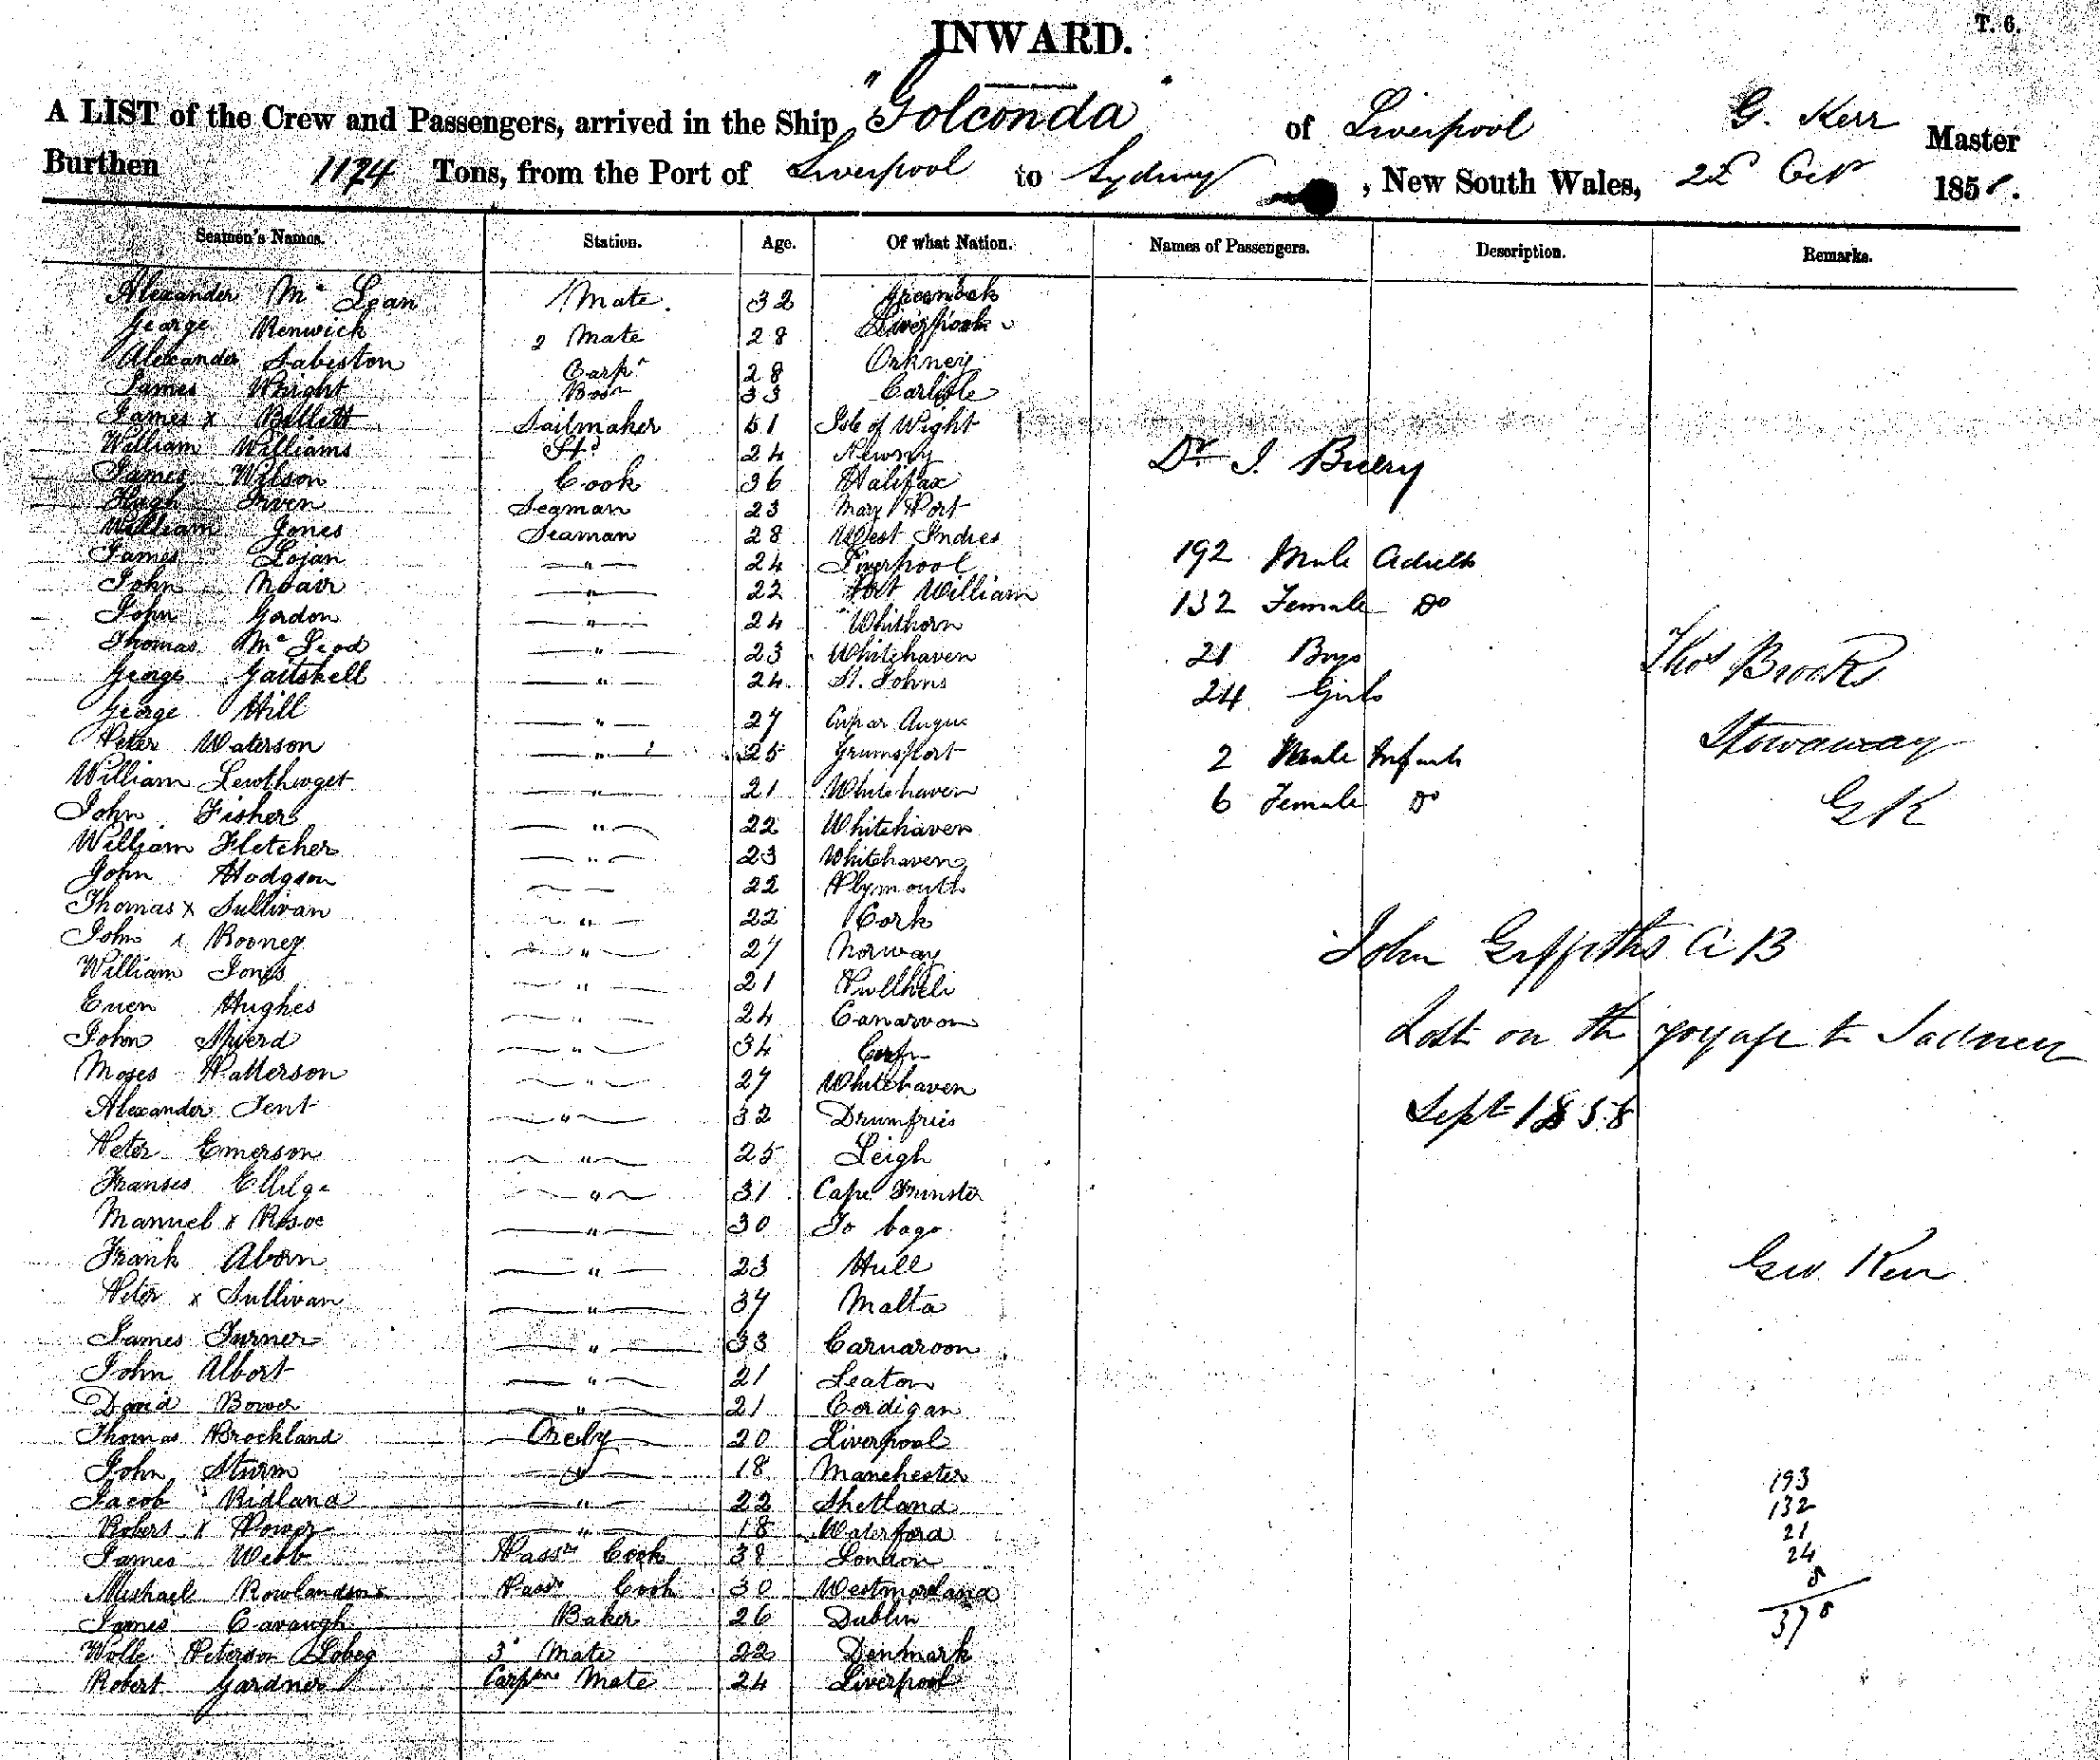 INWARD.
T. 6.
A LIST of the Crew and Passengers, arrived in the Ship "Golconda" of Liverpool G. Kerr Master
Burthen 1124 Tons, from the Port of Liverpool to Sydney, New South Wales, Oct 185
Seamen's Names. Station. Age. Of what Nation. Names of Passengers. Description. Remarks.
Alexander Mc Lean 1 Mate. 32 Greenock
George Renwick 2 Mate 28 Liverpool
Alexander Sabiston Carpr 28 Orkney
James Wright Bosn 33 Carlisle
James x Billett Sailmaker 51 Isle of Wight
William Williams Std 24 Newry
Dr. J. Buery
James Wilson Cook 36 Halifax
Hugh Irven Seaman 23 Mary Port
William Jones Seaman 28 West Indies
James Lojan " 24 Liverpool
192 Male Adults
John Moair " 22 Fort William
132 Female Do
John Gordon " 24 Whithorn
Thomas Mc Leod " 23 Whitehaven
21 Boys
Thos Brook
George Gaitskell " 24 St. Johns
24 Girls
George Hill " 27 Cupar Angus
Stowaway
Peter Waterson " 25 Grumsport
2 Male Infants
William Lewthwget " 21 Whitehaven
6 Female Do
G K
John Fisher " 22 Whitehaven
William Fletcher " 23 Whitehaven
John Hodgson 22 Plymouth
Thomas x Sullivan " 22 Cork
John x Rooney " 27 Norway
John Griffiths A B
William Jones " 21 Pullheli
Even Hughes " 24 Canarvon
Lost on the voyage to Sydney
John " 34
Moses Patterson " 27 Whitehaven
Alexander Tent " 32 Drumfries
Sept 1858
Peter Emerson " 25 Leigh
Franses Ellilge " 31 Cape Trinster
Manuel x Rosoe " 30 To bago
Frank Aborn " 23 Hull
Geo. Kerr
Peter x Sullivan " 37 Malta
James Turner " 33 Carnaroon
John Albort " 21 Leaton
David Bower " 21 Cordigan
Thomas Brockland Ordy 20 Liverpool
John Sturm " 18 Manchester
193
Jacob Ridland " 22 Shetland
132
Robert x Power " 18 Waterford
21
James Webb Passrs Cook 38 London
24
Michael Rowlandson Passr Cook 30 Westmorland
8
James Cavaugh Baker 26 Dublin
378
Wolle Peterson Lobeg 3d Mate 22 Denmark
Robert Gardner Carpters Mate 24 Liverpool